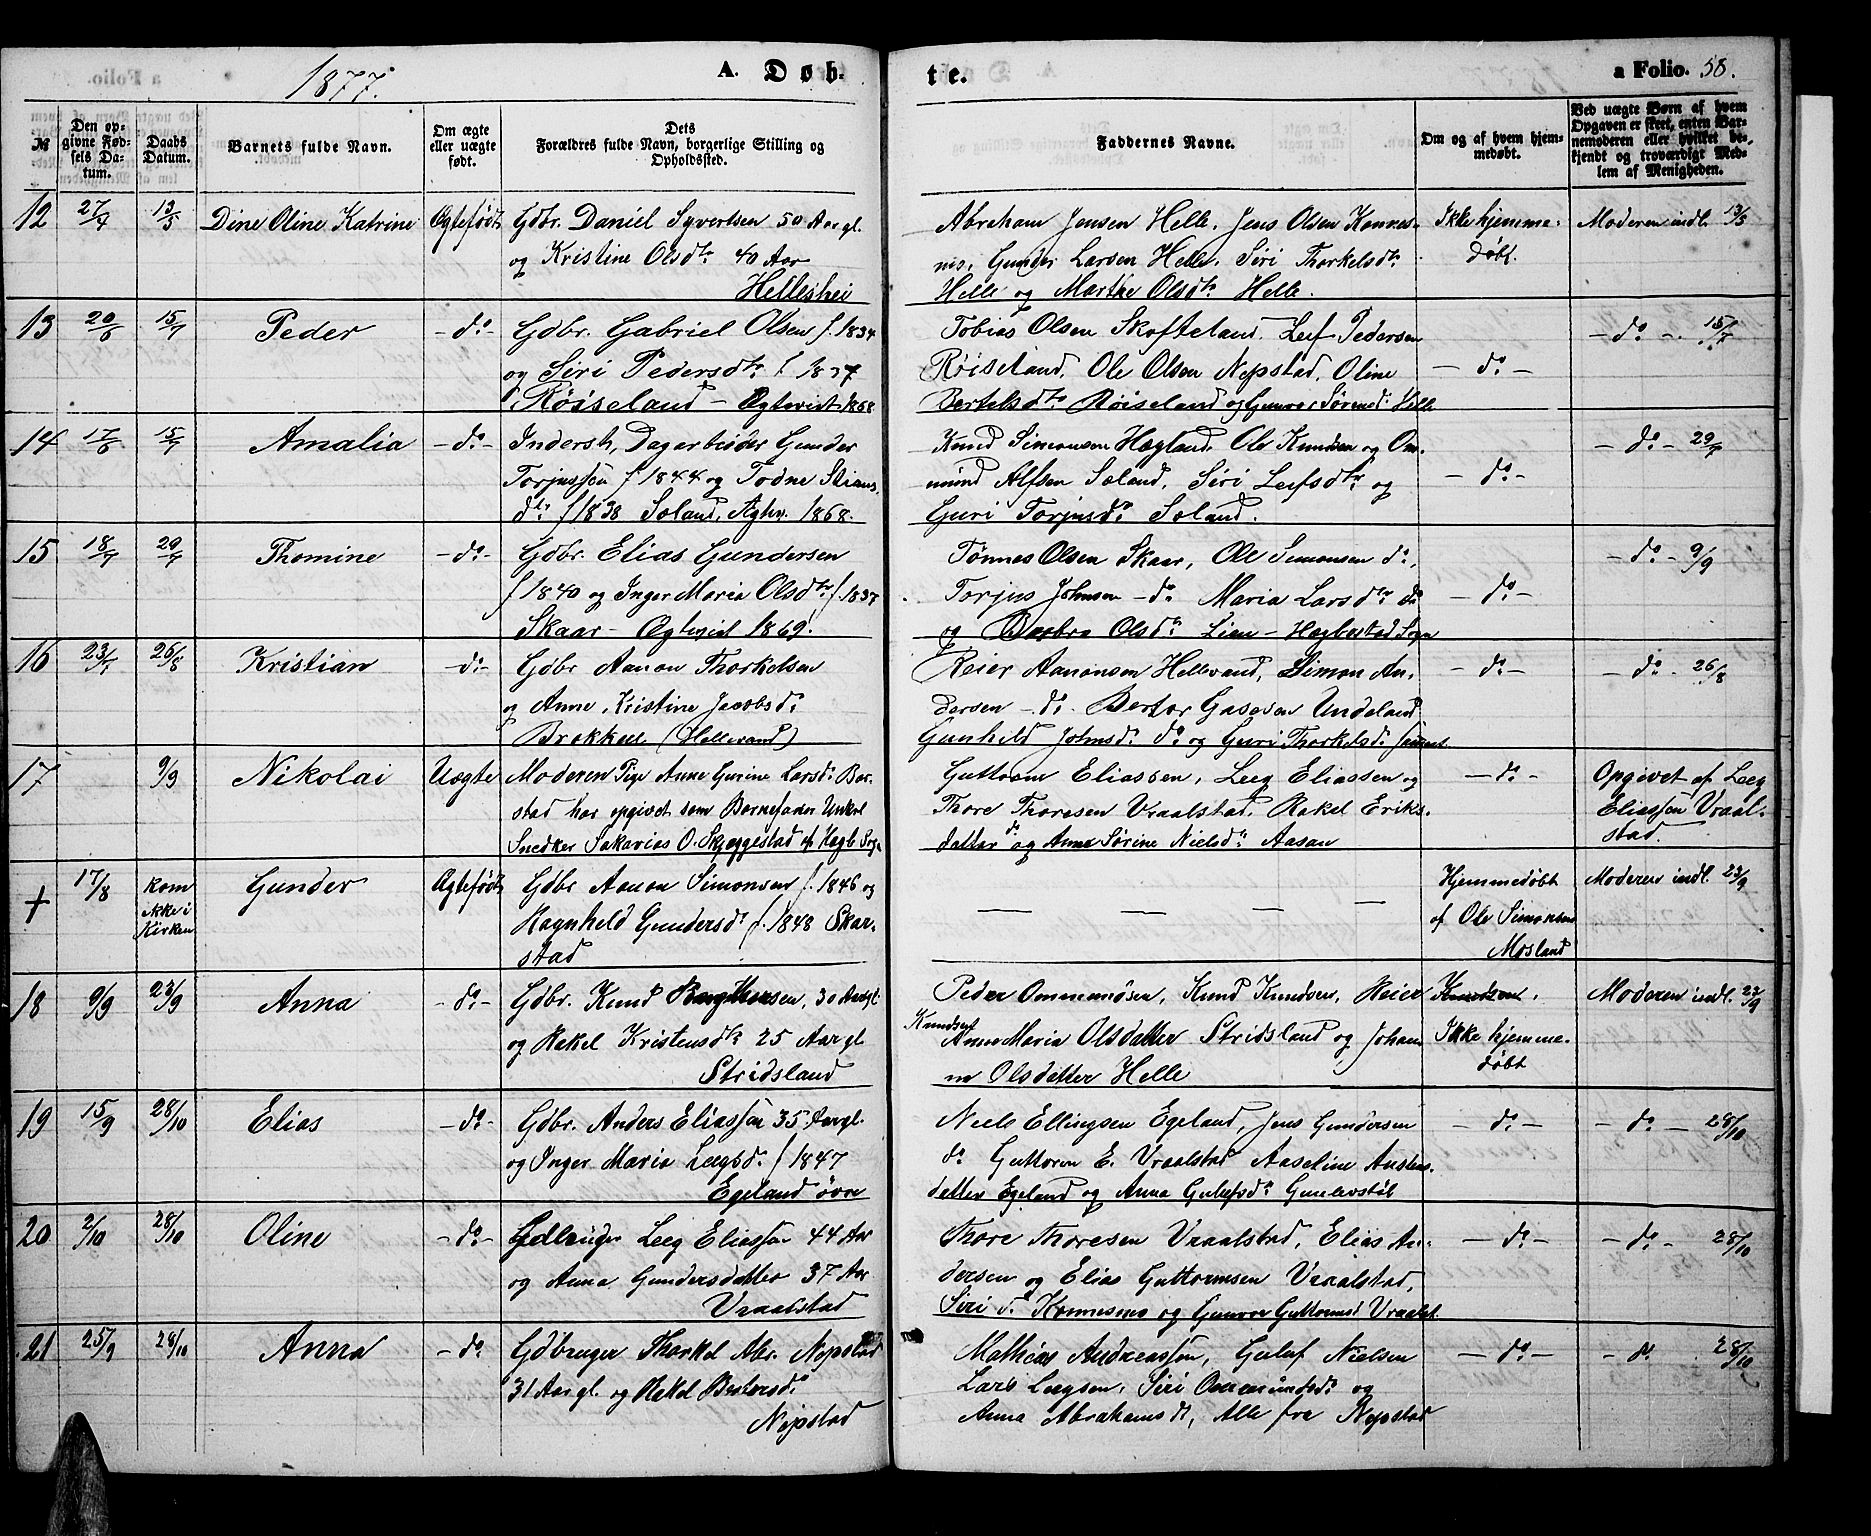 1877.
A. Døb-
te.
a Folio. 58.
№
Den op-
givne Fød-
sels Da-
tum.
Daabs
Datum.
Barnets fulde Navn.
Om ægte
eller uægte
født.
Dets
Forældres fulde Navn, borgerlige Stilling og
Opholdssted.
Faddernes Navne.
Om og af hvem hjem-
medøbt.
Ved uægte Børn af hvem
Opgaven er skeet, enten Bar-
nemoderen eller hvilket be-
kjendt og troværdigt Med-
lem af Menigheden.
12 27/4 13/5 Dine Oline Katrine Ægtefødt Gdbr. Daniel Syvertsen 50 Aar gl.
og Kristine Olsdtr 40 Aar
Helleshei
Abraham Jensen Helle, Jens Olsen Konnes-
mo, Gunder Larsen Helle, Siri Thorkelsdtr
Helle og Marthe Olsdtr Helle.
Ikke hjemme-
døbt.
Moderen indl. 13/5
13 20/6 15/7 Peder -do- Gdbr. Gabriel Olsen f. 1834
og Siri Pedersdtr f. 1837
Røiseland - Ægteviet 1868
Tobias Olsen Skofteland, Leif Pedersen
Røiseland, Ole Olsen Nepstad, Oline
Bertelsdtr Røiseland og Gunvor Sørensd. Helle
- do -
- do - 15/7
14 17/6 15/7 Amalia -do- Inderst, Dagarbeider Gunder
Torjussen f 1844 og Todne Stians
dtr f 1838 Soland, Ægtev. 1868.
Knud Simonsen Hægland, Ole Knudsen og Om-
mund Alfsen Soland, Siri Leifsdtr og
Guri Torjusdr Soland.
- do -
- do - 29/7
15 18/7 29/7 Thomine -do- Gdbr. Elias Gundersen
f 1840 og Inger Maria Olsdtr f 1837
Skaar - Ægteviet 1869.
Tønnes Olsen Skaar, Ole Simonsen do,
Torjus Johnsen - do Maria Larsdtr do
og Barbro Olsdr Lian - Hægbostad Sogn
- do -
- do - 9/9
16 23/7 26/8 Kristian -do- Gdbr Aanon Thorkelsen
og Anne Kristine Jacobsdr
Brokkele (Hellevand)
Reier Aanonsen Hellevand, Simon An-
dersen - do - Berthor Gasesen Undeland
Gunhild Johnsdr do og Guri Thorkelsdr
- do -
- do - 26/8
17 9/9 Nikolai Uægte Moderen Pige Anne Gurine Larsdr Bar-
stad har opgivet som Barnefader Unkel
Snedker Sakarias O. Skjeggestad af Hægb. Sogn
Guttorm Eliassen, Leeg Eliassen og
Thore Thoresen Vraalstad, Rakel Eriks-
datter do og Anne Sørine Nielsdr Aasan
- do -
Opgivet af Leeg
Eliassen Vraal-
stad.
+ 17/8 kom
ikke i
Kirken Gunder Ægtefødt Gdbr Aanon Simonsen f. 1846 og
Ragnheld Gundersdr f. 1848 Skar-
stad
— — — —
Hjemmedøbt
af Ole Simonsen
Mosland
Moderen indl. 23/9
18 9/9 23/9 Anna -do- Gdbr. Knud Bergthorsen, 30 Aar gl.
og Rakel Kristensdtr 25 Aar gl.
Stridsland
Peder Ommundsen, Knud Knudsen, Reier Knudsen,
Knudsen Anne Maria Olsdatter Stridsland og Johan-
ne Olsdatter Helle
Ikke hjemme-
døbt
Moderen indl. 23/9
19 15/9 28/10 Elias -do- Gdbr. Anders Eliassen 35 Aar gl.
og Inger Maria Leegsdr f 1847
Egeland øvre
Niels Ellingsen Egeland, Jens Gundersen
do Guttorm E. Vraalstad Aaseline Austens-
datter Egeland og Anna Gulufsdtr Gunlevstøl
- do -
- do - 28/10
20 2/10 28/10 Oline -do- Gdbruger Leeg Eliassen 44 Aar
og Anna Gundersdatter 37 Aar
Vraalstad
Thore Thoresen Vraalstad, Elias An-
dersen og Elias Guttormsen Vraalstad,
Siri do Konnesmo og Gunvor Guttormsd Vraalst.
- do -
- do - 28/10
21 25/9 28/10 Anna -do Gdbruger Thorkel Abr. Nepstad
31 Aar gl. og Rakel
Nepstad
Mathias Andreassen, Guluf Nielsen
Lars Leegsen, Siri Ommundsdr og
Anna Abrahamsdt, Alle fra Nepstad
- do -
- do 28/10